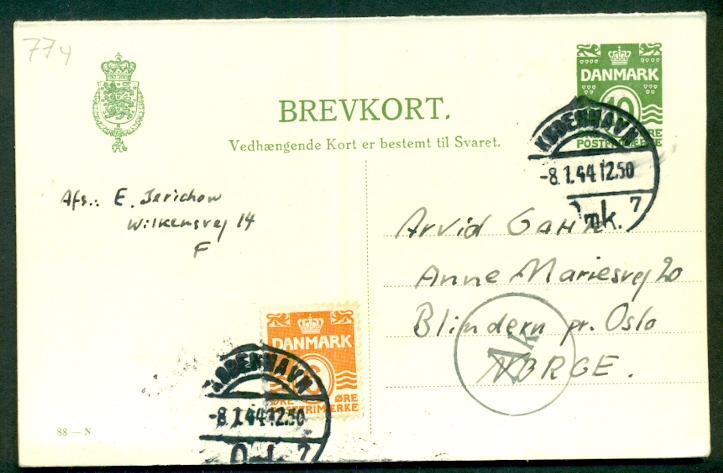 774
DANMARK
10
POSTFRIMÆRKE
BREVKORT.
Vedhængende Kort er bestemt til Svaret.
KØBENHAVN
-8.1.44 12.50
Omk. 7
Afs.: E. Jerichow
Wilkensvej 14
F
Arvid
Anne Mariesvej 20
Blindern pr. Oslo
NORGE.
Ak
DANMARK
6
ØRE ØRE
POSTFRIMÆRKE
KØBENHAVN
-8.1.44 12.50
Omk. 7
88 — N